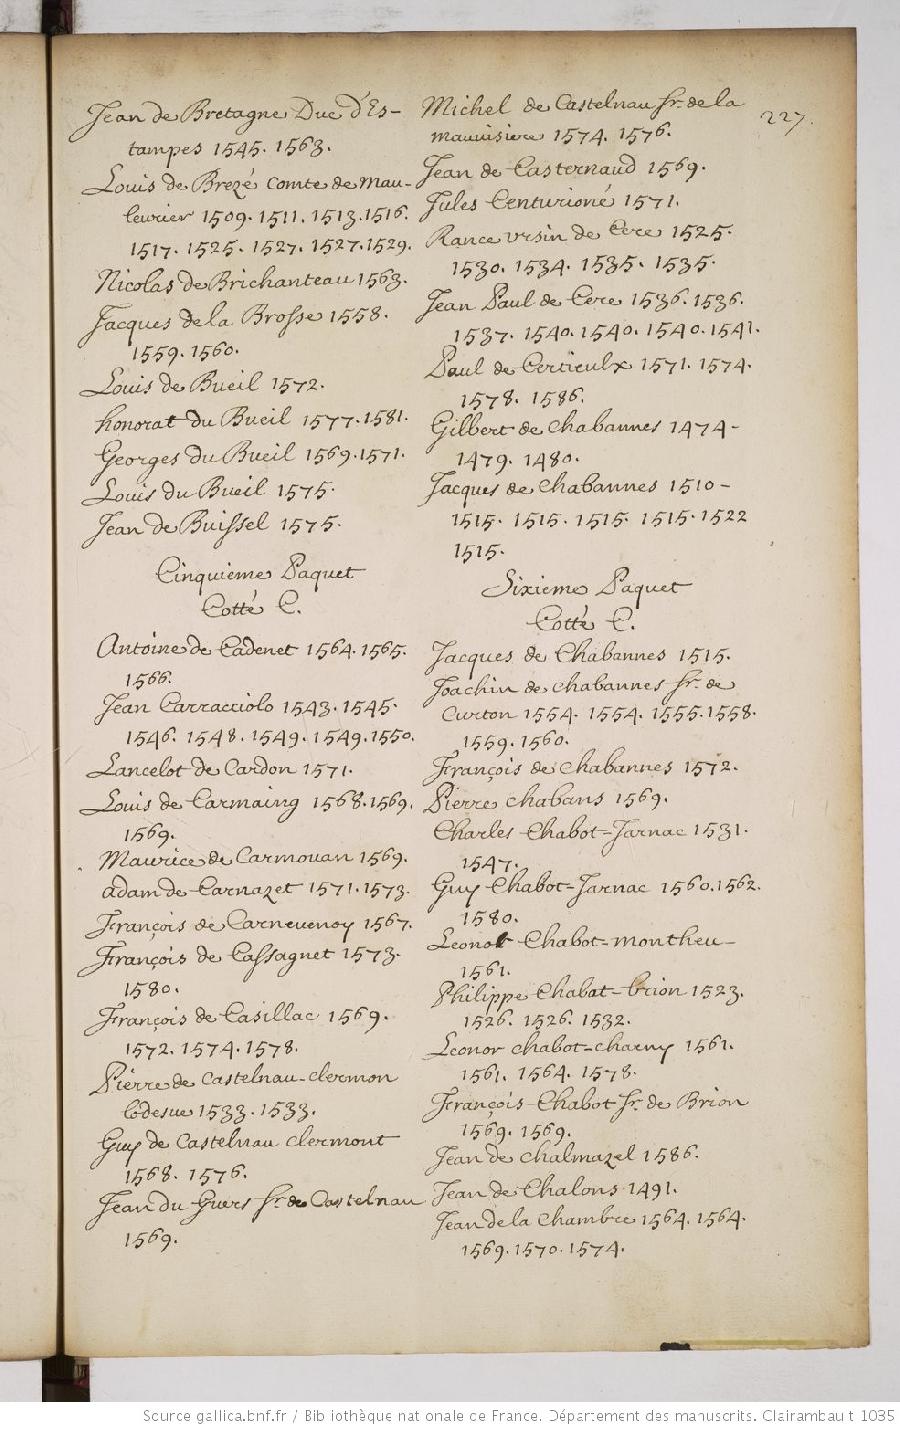 227.
Jean de Bretagne Duc d'Es-
tampes 1545. 1563.
Louis de Brezé comte de Mau-
levrier 1509. 1511. 1513. 1516.
1517. 1525. 1527. 1527. 1529.
Nicolas de Brichanteau 1563.
Jacques de la Brosse 1558.
1559. 1560.
Louis de Bueil 1572.
honorat du Bueil 1577. 1581.
Georges du Bueil 1569. 1571.
Louis du Bueil 1575.
Jean de Buissel 1575.
Cinquieme Paquet
Cotté C.
Antoine de Cadenet 1564. 1565.
1566.
Jean Carracciolo 1543. 1545.
1546. 1548. 1549. 1549. 1550.
Lancelot de Cardon 1571.
Louis de Carmaing 1568. 1569.
1569.
Maurice de Carmouan 1569.
adam de Carnazet 1571. 1573.
François de Carnevenoy 1567.
François de Cassagnet 1573.
1580.
François de Casillac 1569.
1572. 1574. 1578.
Pierre de Castelnau-clermon
lodesue 1533. 1533.
Guy de Castelnau clermont
1568. 1576.
Jean du Guers Sr. de Castelnau
1569.
Michel de Castelnau Sr. de la
mauvisiere 1574. 1576.
Jean de Casternaud 1569.
Jules Centurioné 1571.
Rance ursin de Cere 1525.
1530. 1534. 1535. 1535.
Jean Paul de Cere 1536. 1536.
1537. 1540. 1540. 1540. 1541.
Paul de Certieulx 1571. 1574.
1578. 1586.
Gilbert de Chabannes 1474-
1479. 1480.
Jacques de Chabannes 1510-
1515. 1515. 1515. 1515. 1522
1515.
Sixieme Paquet
Cotté C.
Jacques de Chabannes 1515.
Joachin de chabannes Sr. de
Curton 1554. 1554. 1555. 1558.
1559. 1560.
François de Chabannes 1572.
Pierre Chabans 1569.
Charles Chabot-Jarnac 1531.
1547.
Guy Chabot-Jarnac 1560. 1562.
1580.
Leonor Chabot-montheu-
1561.
Philippe Chabat-brion 1523.
1526. 1526. 1532.
Leonor chabot-charny 1561.
1561. 1564. 1578.
François-Chabot Sr. de Brion
1569. 1569.
Jean de Chalmazel 1586.
Jean de Chalons 1491.
Jean de la Chambre 1564. 1564.
1569. 1570. 1574.
Source gallica.bnf.fr / Bibliothèque nationale de France. Département des manuscrits. Clairambault 1035